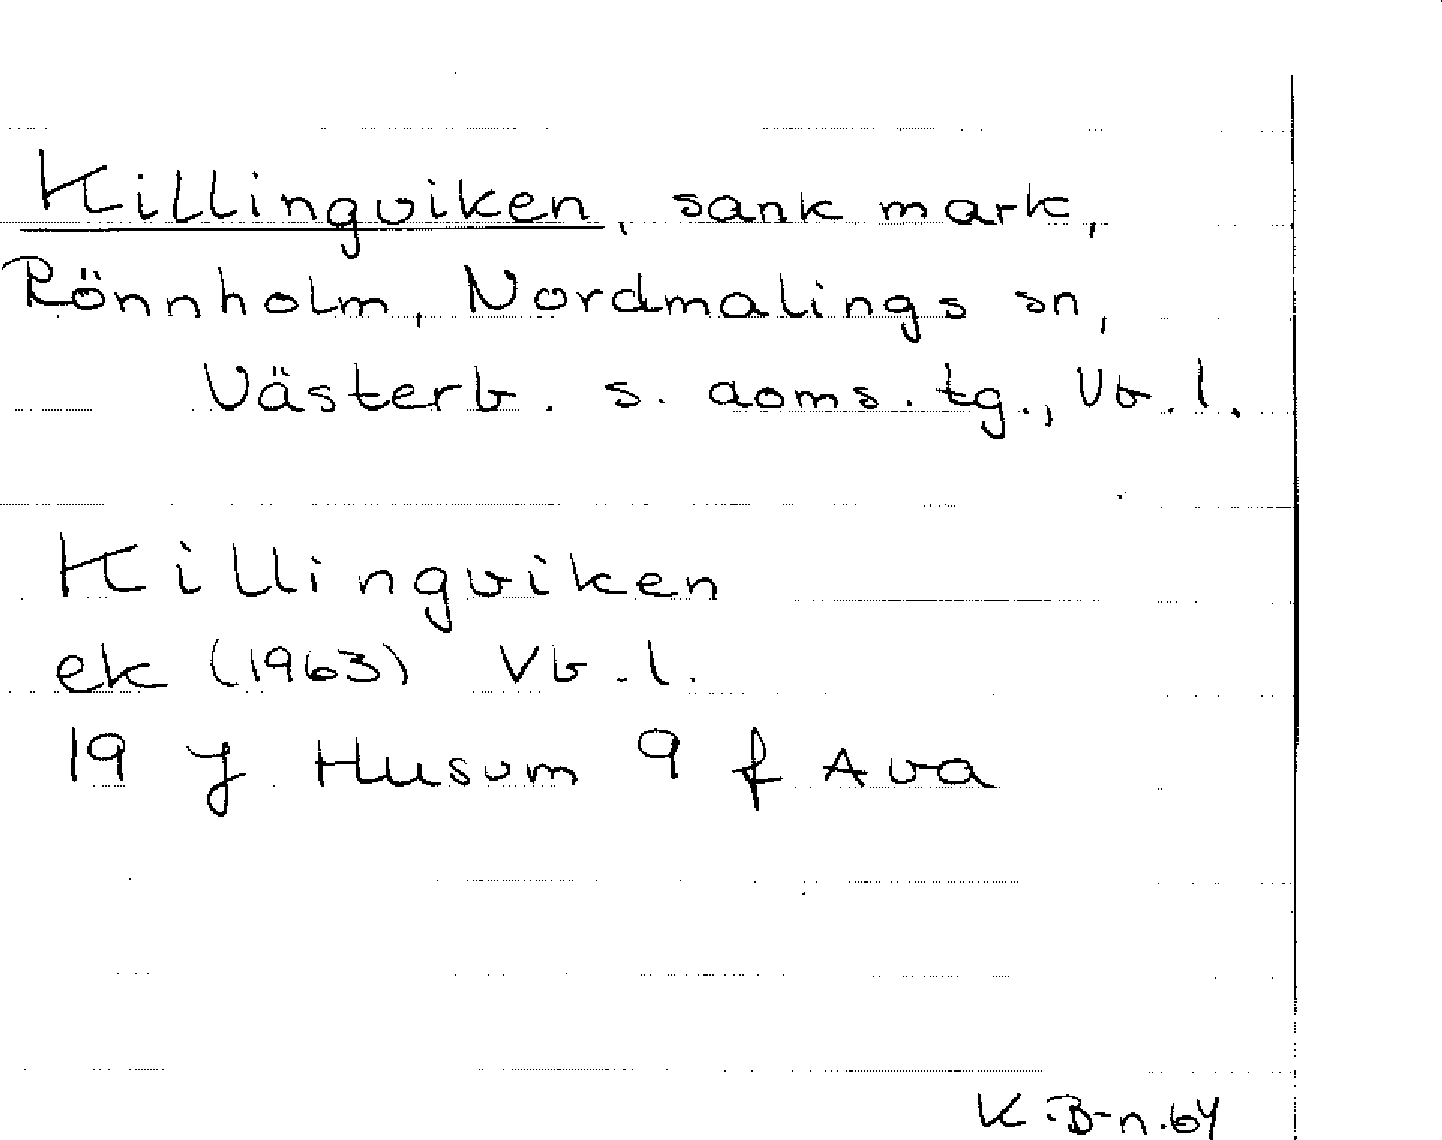 Killingviken, sank mark,
Rönnholm, Nordmalings sn,
Västerb. s. doms. tg., Vb. l.
Killingviken
ek (1963) Vb. l.
19 J Husum 9 f Ava
K.B-n.64